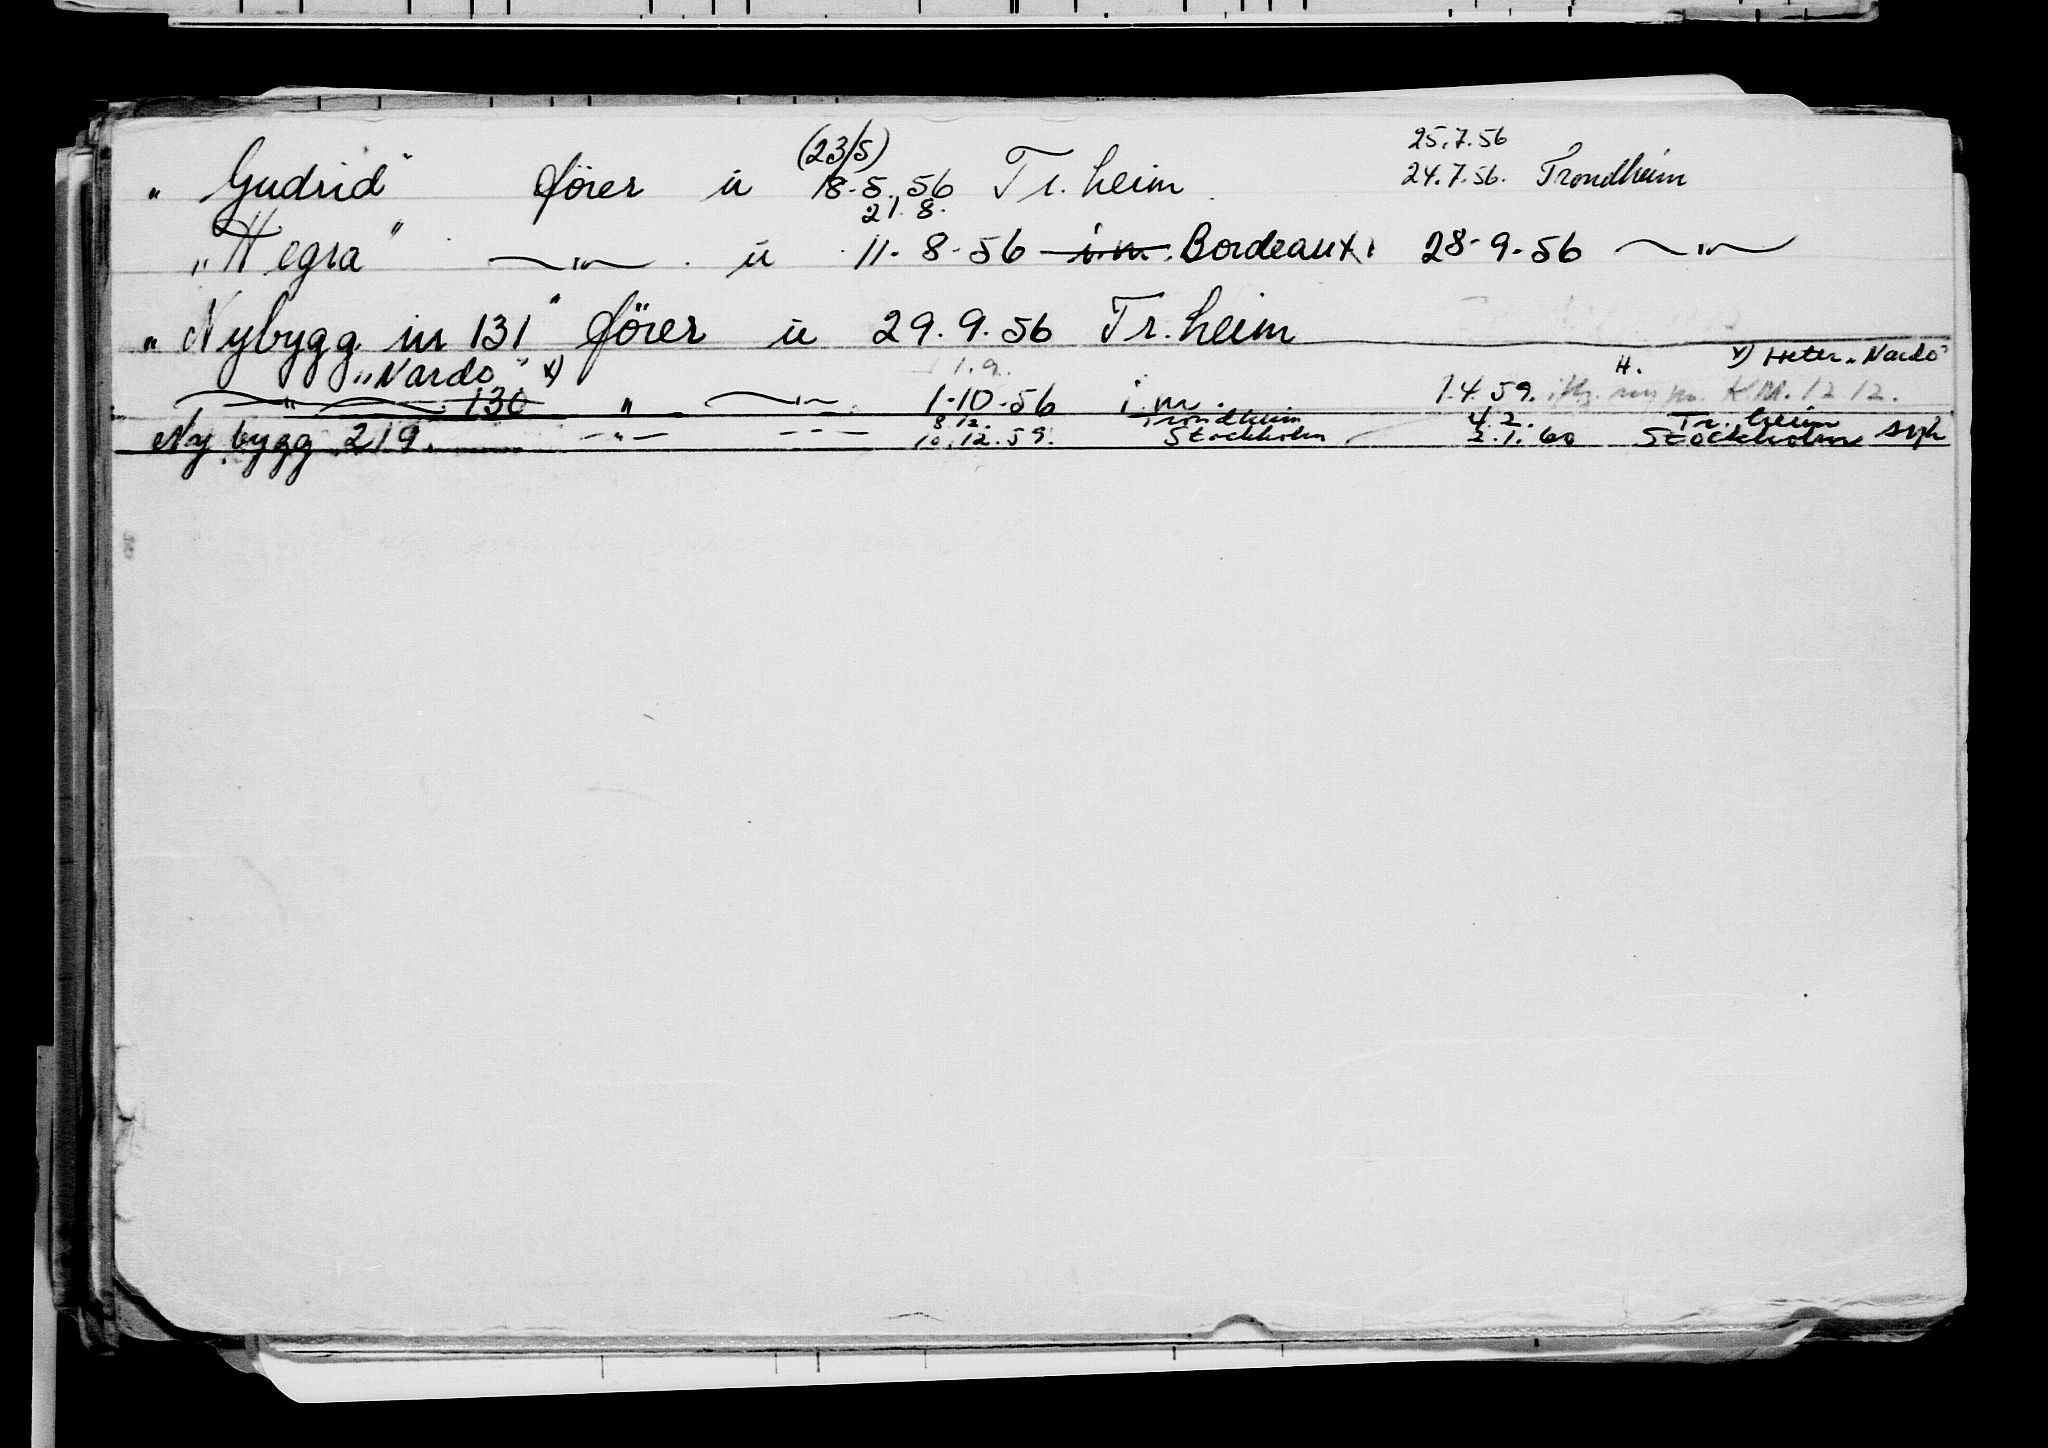 (23/5) 25.7.56
„Gudrid" fører u 18.5.56 Tr.heim 24.7.56. Trondheim
21.8.
„Hegra" —"— u 11.8.56 i.m. Bordeaux 28.9.56 —"—
„Nybygg nr 131" fører u 29.9.56 Tr.heim
„Nardo" x) 1.9. H. x) Heter „Nardo"
—"— 130 " —"— 1.10.56 i.m. 1.4.59. K.M. 12 12.
8.12. Trondheim 4.2. Tr.heim
Nybygg 219. —"— — — 10.12.59. Stockholm 2.1.60 Stockholm syk